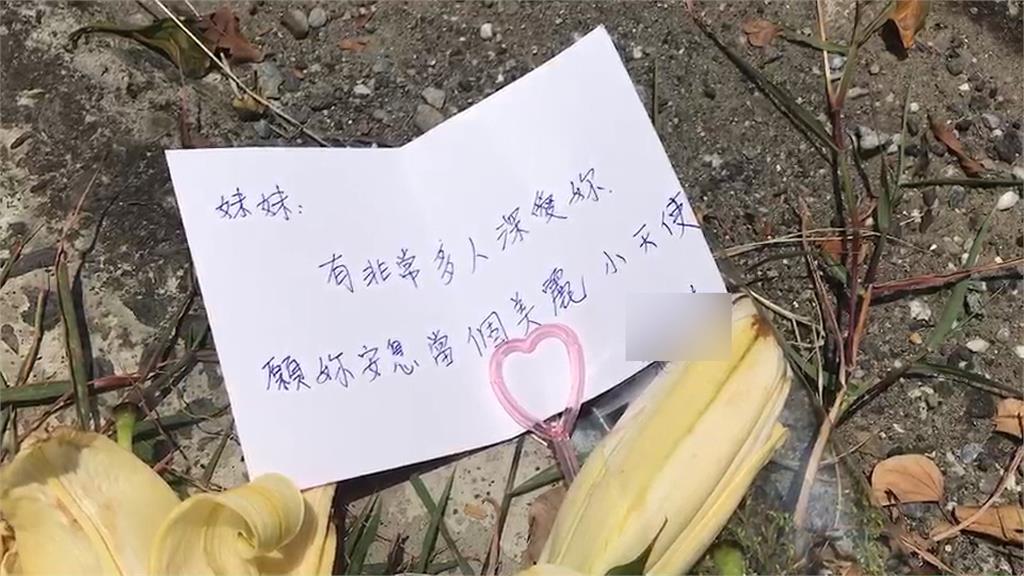 妹妹:
有非常多人深愛妳
願妳安息當個美麗小天使